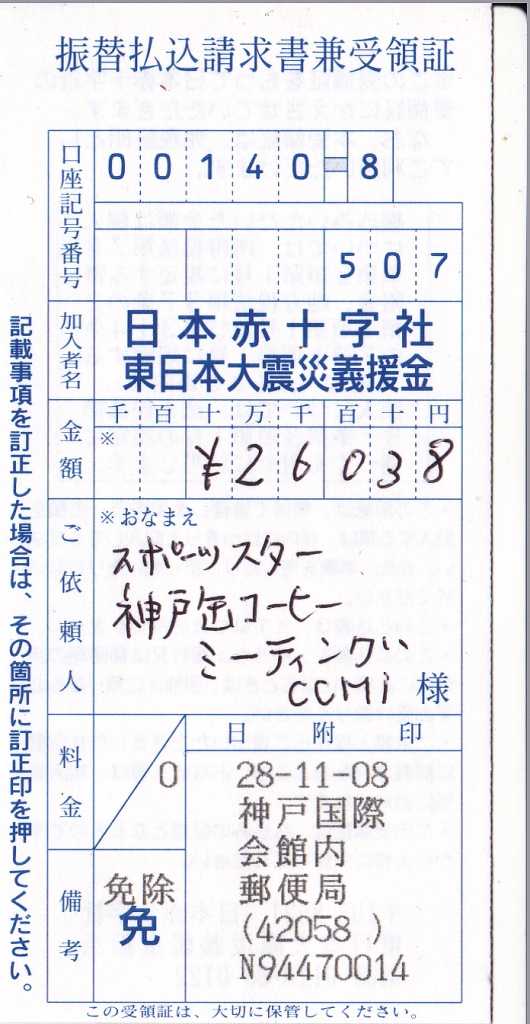 振替払込請求書兼受領証
口座記号番号
00140-8
507
加入者名
日本赤十字社
東日本大震災義援金
金額
千百十万千百十円
※
¥26038
ご依頼人
※おなまえ
スポーツスター
神戸缶コーヒー
ミーティング
様
料金
0
日附印
28-11-08
神戸国際
会館内
郵便局
(42058 )
N94470014
備考
免除
免
記載事項を訂正した場合は、その箇所に訂正印を押してください。
この受領証は、大切に保管してください。